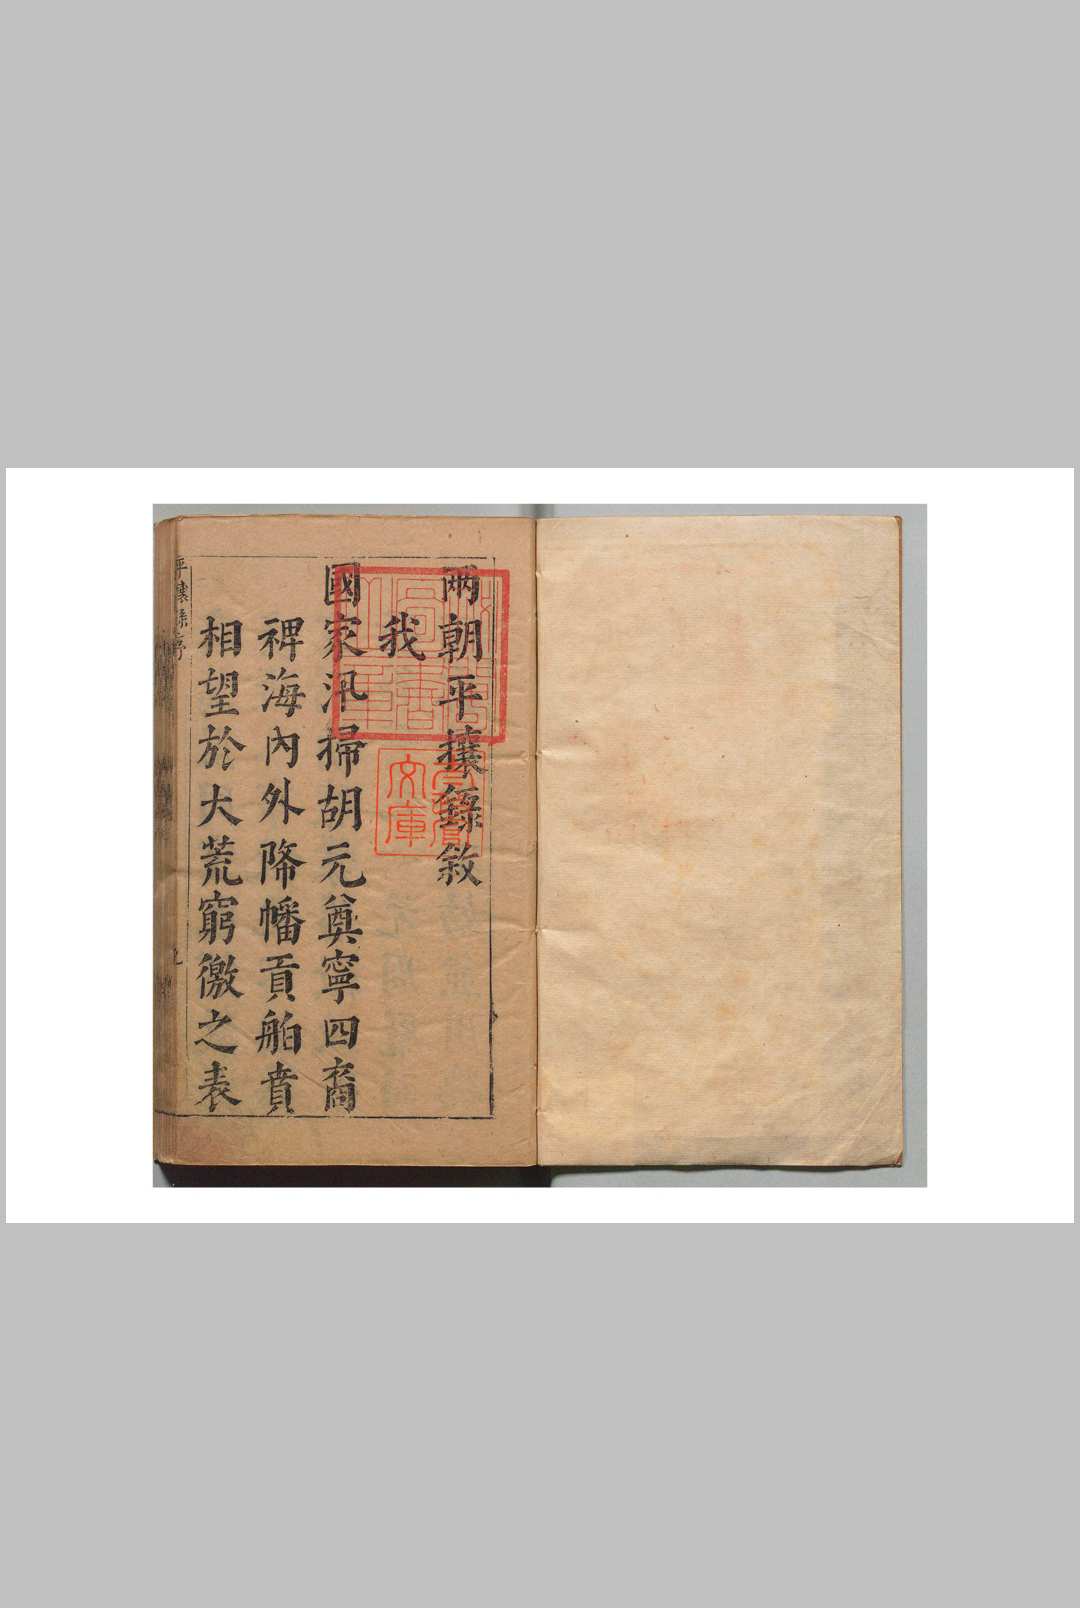 兩朝平攘錄敘
我
國家汛掃胡元奠寧四裔
裨海內外降幡貢舶賁
相望於大荒窮徼之表
平攘錄序
文庫